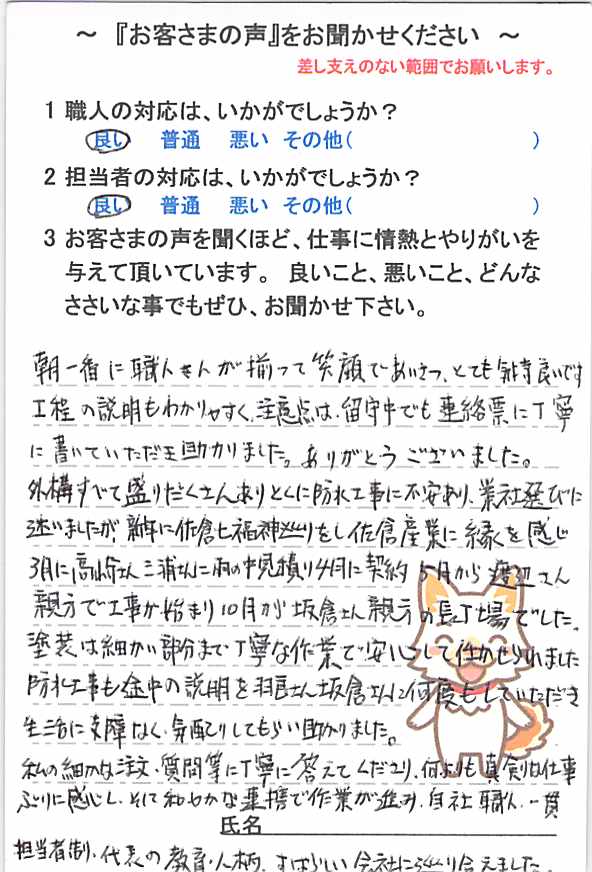 ～ 『お客さまの声』をお聞かせください ～
差し支えのない範囲でお願いします。
1 職人の対応は、いかがでしょうか？
良い 普通 悪い その他( )
2 担当者の対応は、いかがでしょうか？
良い 普通 悪い その他( )
3 お客さまの声を聞くほど、仕事に情熱とやりがいを
与えて頂いています。 良いこと、悪いこと、どんな
ささいな事でもぜひ、お聞かせ下さい。
朝一番に職人さんが揃って笑顔であいさつ、とても気持良いです
工程の説明もわかりやすく、注意点は、留守中でも連絡票に丁寧
に書いていただき助かりました。ありがとうございました。
外構すべて盛りだくさんありとくに防水工事に不安あり、業社選びに
迷いましたが、新年に佐倉七福神巡りをし佐倉産業に縁を感じ
3月に高崎さん三浦さんに雨の中見積り4月に契約 5月から渡辺さん
親方で工事が始まり10月が坂倉さん親方の長丁場でした。
塗装は細かい部分まで丁寧な作業で安心して任せられました
防水工事も途中の説明を羽さん坂倉さんに何度もしていただき
生活に支障なく、気配りしてもらい助かりました。
私の細かな注文、質問等に丁寧に答えてくださり、何よりも真剣な仕事
ぶりに感じし、そして和やかな連携で作業が進み、自社職人、一貫
氏名
担当者制、代表の教育、人柄、すばらしい会社に巡り合えました。